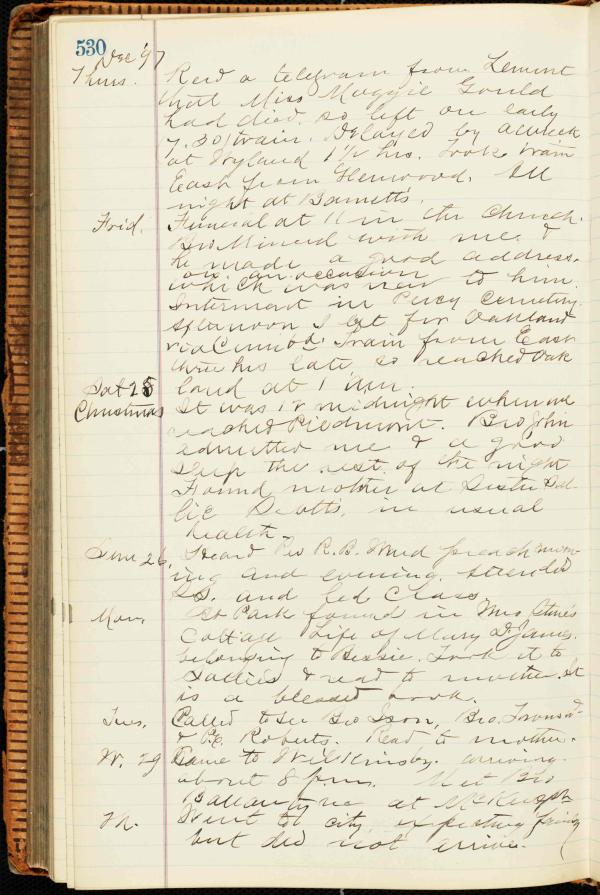 530
Dec '97
Thurs. Recd a telegram from Lemont
that Miss Maggie Gould
had died. so left on early
7.30 train. Delayed by a wreck
at Hyland 1 1/2 hrs. Took train
East from Glenwood. All
night at Barnetts.
Frid. Funeral at 11 in the church.
Bro Minerd with me &
he made a good address.
on an occasion
which was new to him.
Interment in Percy Cemetery.
Afternoon I left for Oakland
via Cumbd. Train from East
three hrs late, so reached Oak
land at 1 a.m.
Sat 25 Christmas It was 12 midnight when we
reached Piedmont. Bro John
admitted me & a good
sleep the rest of the night
Found mother at Sister Sal-
lie Scotts, in usual
health.
Sun 26. Heard Rev R. B. preach morn-
ing and evening. Attended
S.S. and led Class.
Mon. Mt Park found in Mrs
Cottage Life of Mary D. James.
belonging to Bessie. Took it to
Sallies & read to mother. It
is a blessed book.
Tues. Called to see Bro Ison, Bro. Townsd
& P.E. Roberts. Read to mother.
W. 29 Came to Wilkinsby. arriving
about 8 p.m. Met Bro
Ballantyne at McKeesph
Th. Went to city, expecting
but did not arrive.